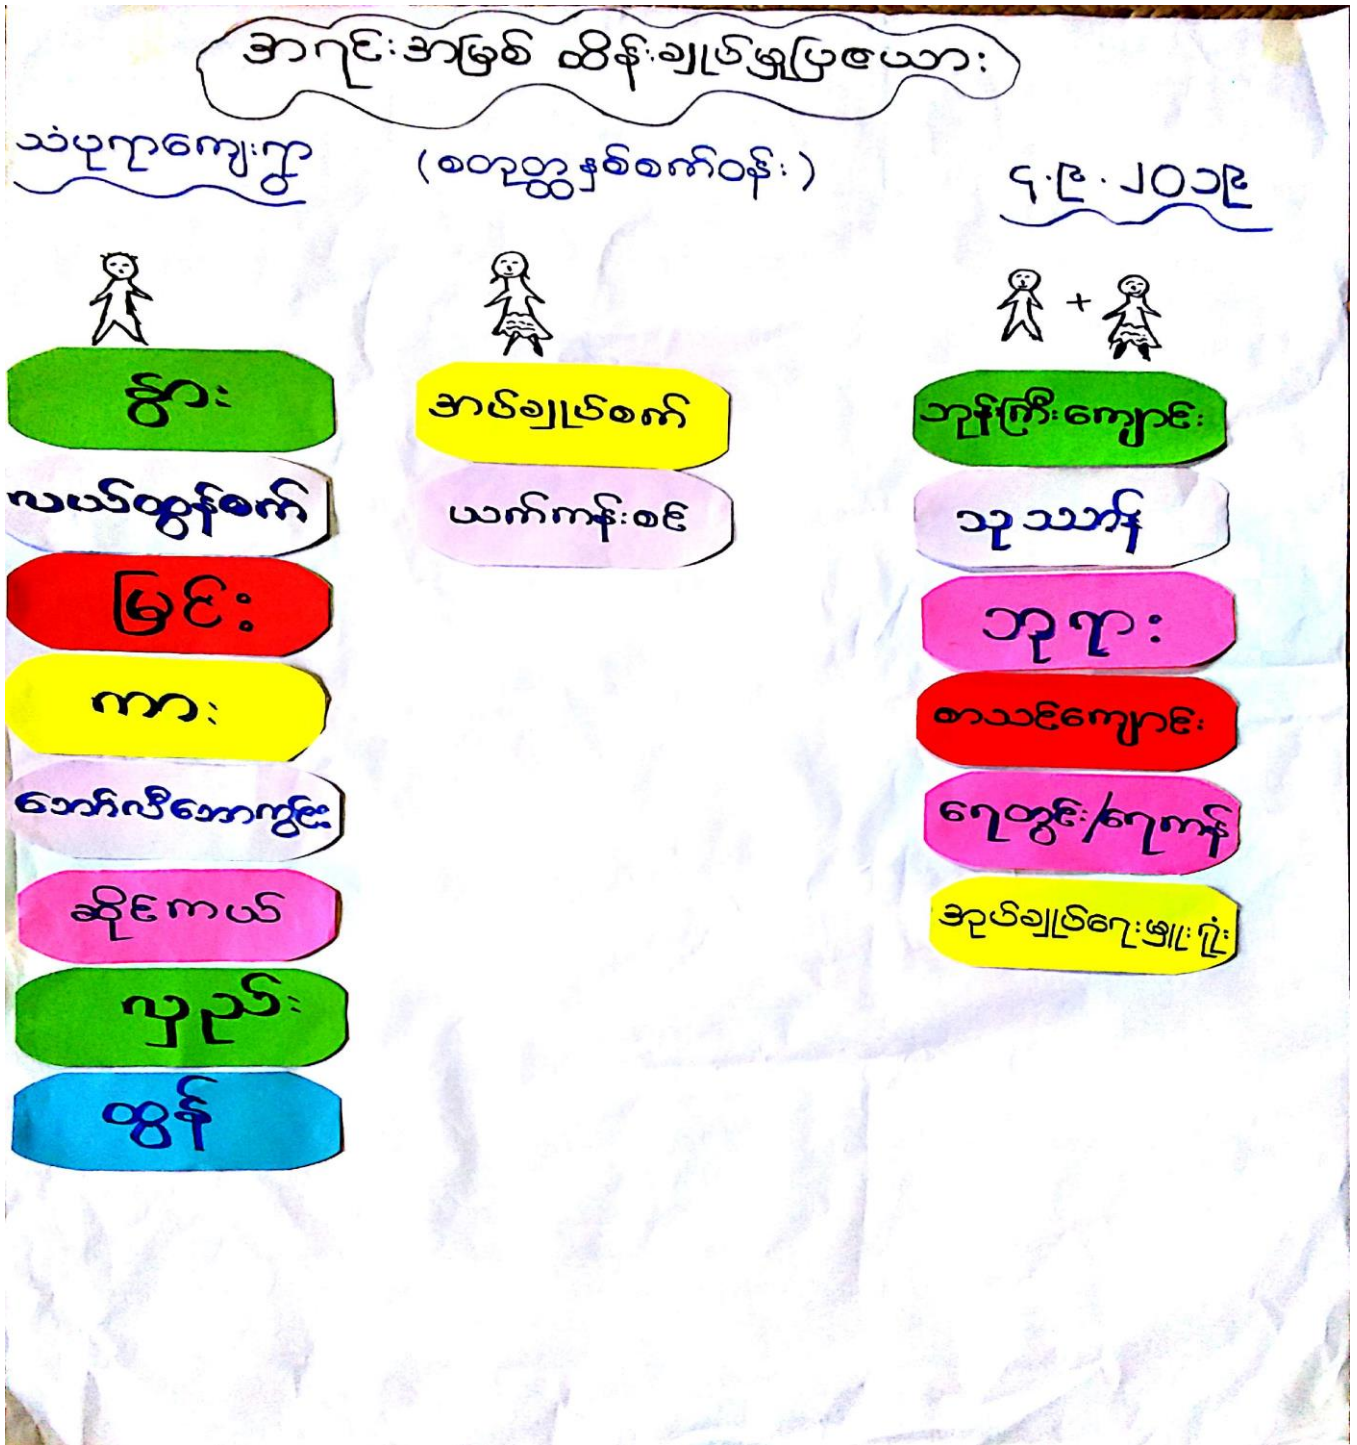 အရင်းအမြစ် ထိန်းချုပ်မှုပြဇယား
သံပုရာကျေးရွာ
(စတုတ္ထနှစ်စက်ဝန်း)
၄.၉.၂၀၁၉
+
နွား
လယ်ထွန်စက်
မြင်း
ကား
ဘော်လီဘောကွင်း
ဆိုင်ကယ်
လှည်း
ထွန်
အပ်ချုပ်စက်
ယက်ကန်းစင်
ဘုန်းကြီးကျောင်း
သုသာန်
ဘုရား
စာသင်ကျောင်း
ရေတွင်း/ရေကန်
အုပ်ချုပ်ရေးမှူးရုံး